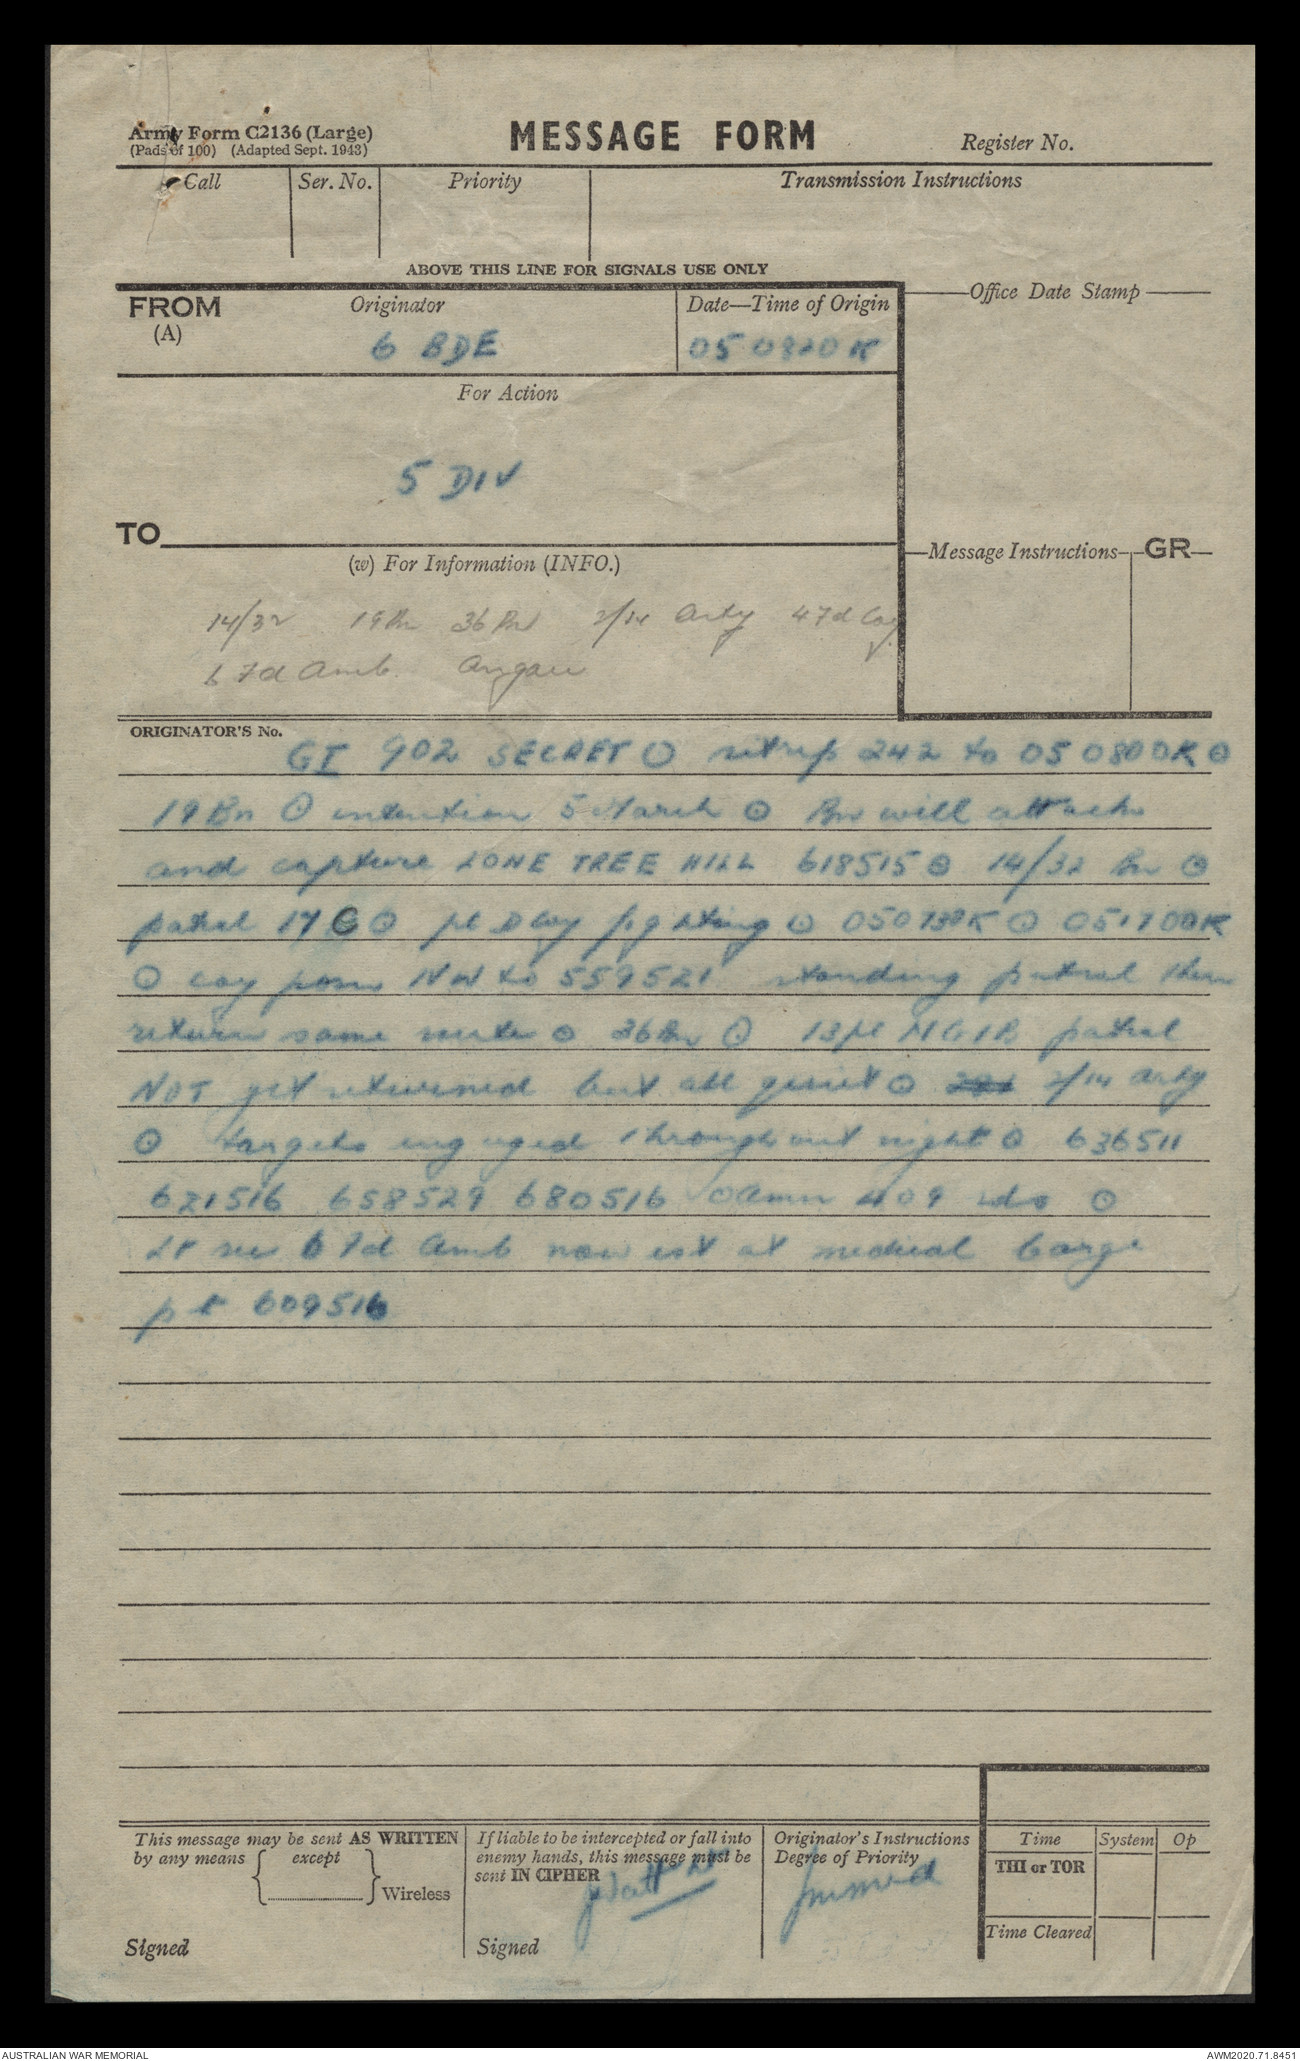 Army Form C2136 (Large)
(Pads of 100) (Adapted Sept. 1943)
MESSAGE FORM
Register No.
Call
Ser. No.
Priority
Transmission Instructions
ABOVE THIS LINE FOR SIGNALS USE ONLY
FROM
(A)
Originator
6 BDE
Date—Time of Origin
050820K
Office Date Stamp
For Action
5 DIV
TO
(w) For Information (INFO.)
Message Instructions
GR
14/32 19 Bn 36 Bn 2/14 Arty 4 Fd Coy
6 Fd Amb. Angau
ORIGINATOR'S No.
GI 902 SECRET ⊙ sitrep 242 to 050800K ⊙
19 Bn ⊙ intention 5 March ⊙ Bn will attack
and capture LONE TREE HILL 618515 ⊙ 14/32 Bn ⊙
patrol 17 G ⊙ pl D Coy fighting ⊙ 050730K ⊙ 051700K
⊙ coy posn NW to 559521 standing patrol then
return same route ⊙ 36 Bn ⊙ 13 pl NGIB patrol
NOT yet returned but all quiet ⊙ 2/14 Arty
⊙ targets engaged throughout night ⊙ 636511
621516 658529 680516 ⊙ amn 409 rds ⊙
Lt sec 6 Fd Amb now est at medical barge
pt 609516
This message may be sent AS WRITTEN
by any means
except
Wireless
Signed
If liable to be intercepted or fall into
enemy hands, this message must be
sent IN CIPHER
Signed
Originator's Instructions
Degree of Priority
Immed
Time
System
Op
THI or TOR
Time Cleared
AUSTRALIAN WAR MEMORIAL
AWM2020.71.8451